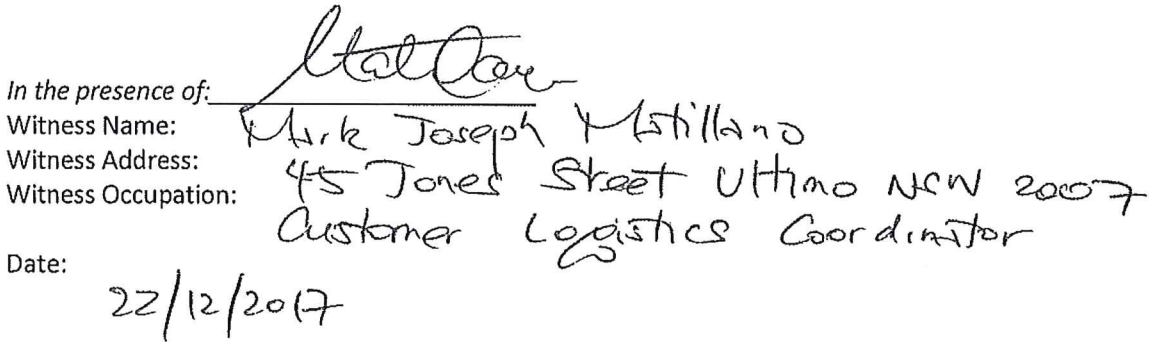 In the presence of:
Witness Name: Mark Joseph
Witness Address: 45 Jones Street Ultimo NSW 2007
Witness Occupation: Customer Logistics Coordinator
Date:
22/12/2017